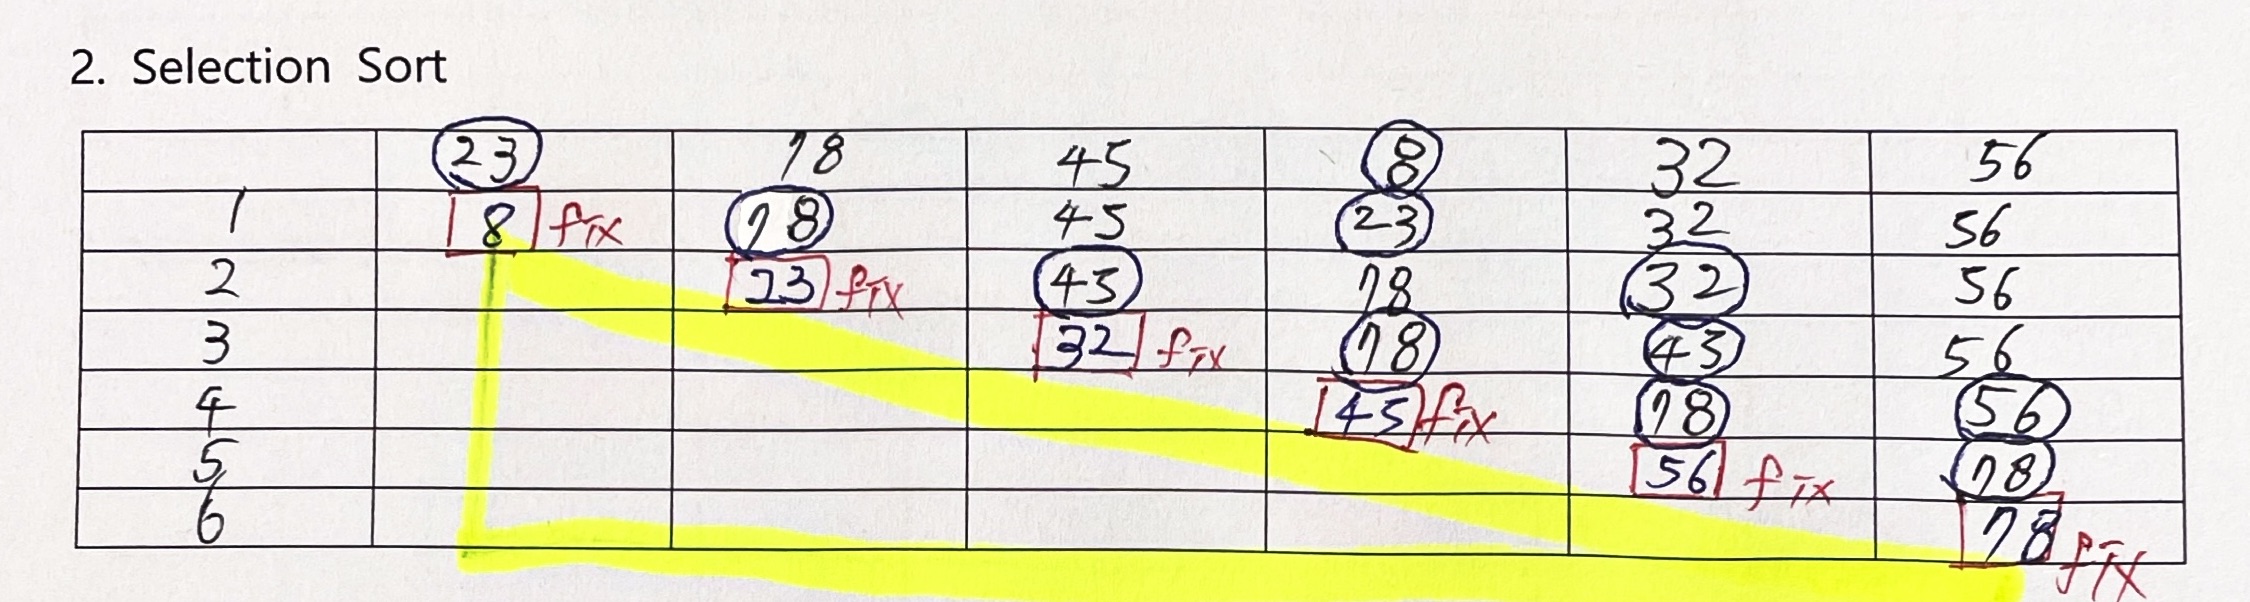 2. Selection Sort
23 78 45 8 32 56
1 8 fix 78 45 23 32 56
2 23 fix 45 78 32 56
3 32 fix 78 45 56
4 45 fix 78 56
5 56 fix 78
6 78 fix